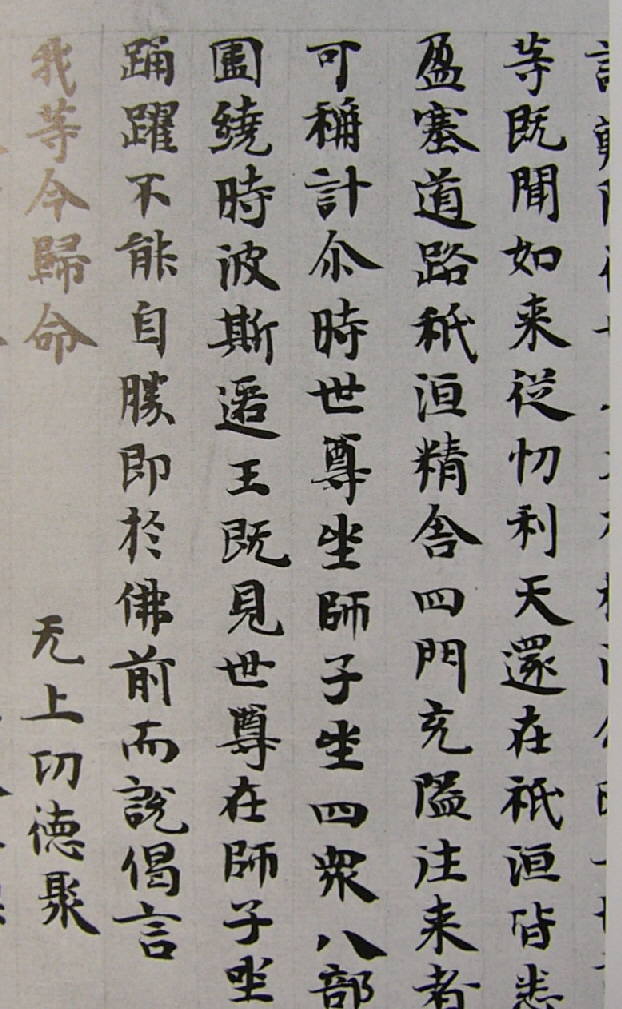 等既聞如来従忉利天還在祇洹皆悉
盈塞道路祇洹精舎四門充隘注来者
可稱計尒時世尊坐師子坐四衆八部
圍繞時波斯匿王既見世尊在師子坐
踊躍不能自勝即於佛前而説偈言
我等今歸命　无上功徳聚